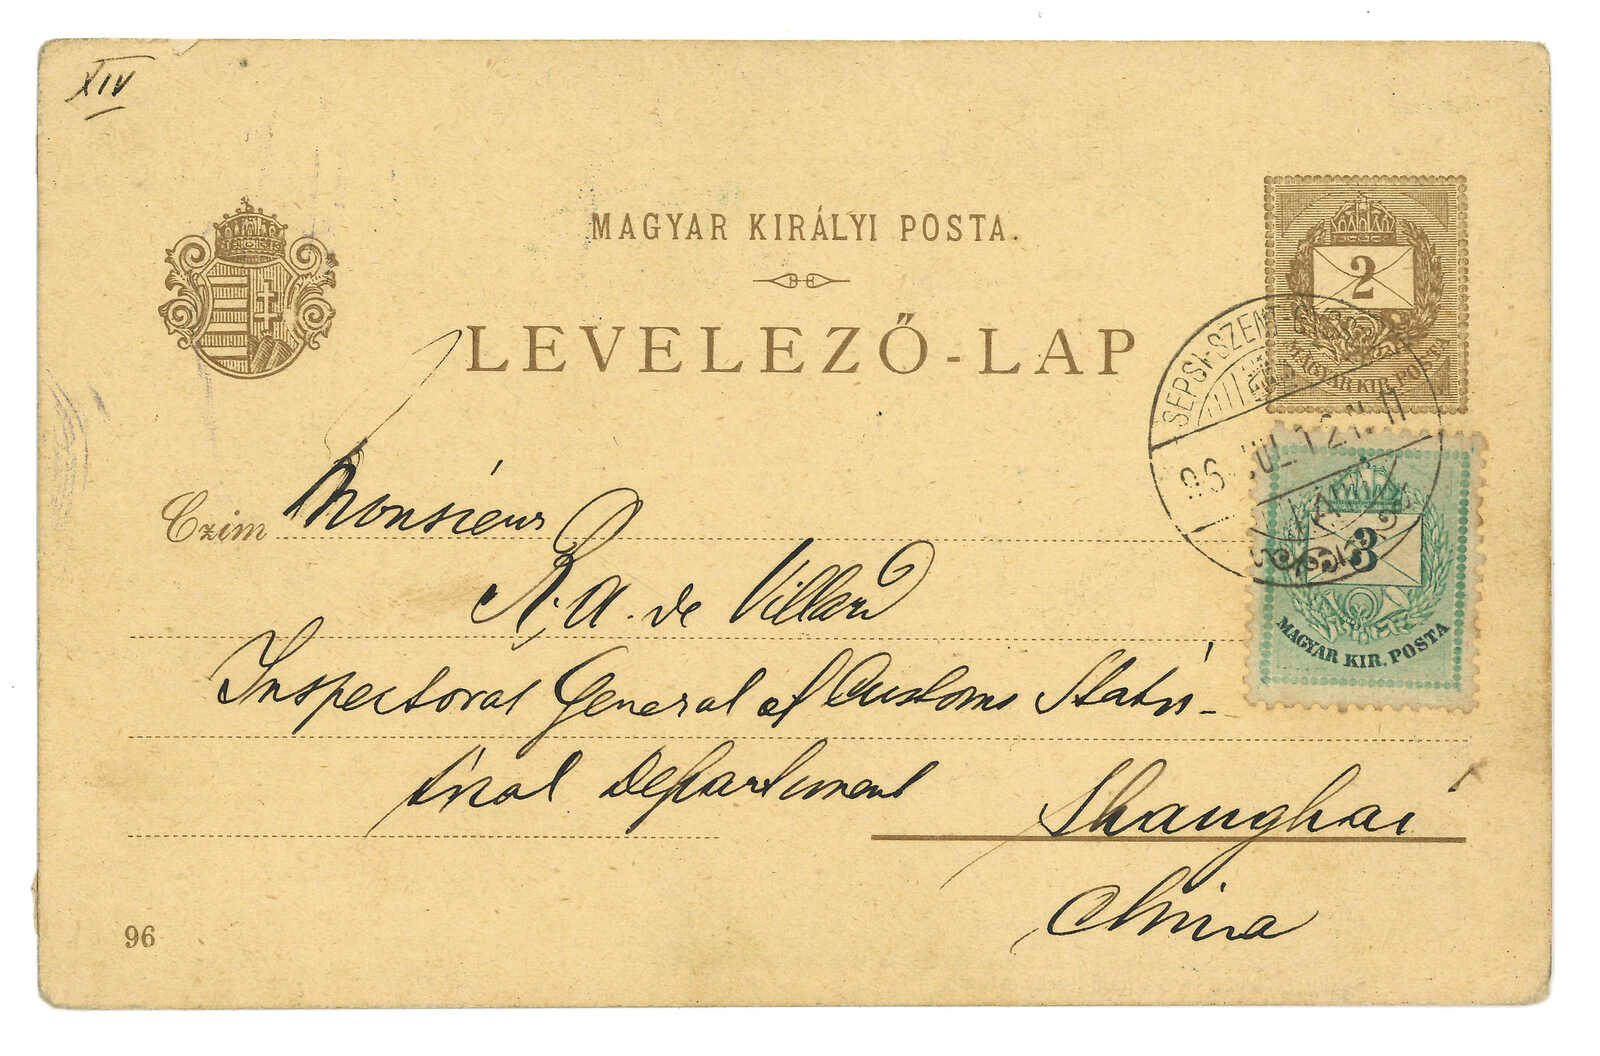 XIV
MAGYAR KIRÁLYI POSTA.
LEVELEZŐ-LAP
2
MAGYAR KIR. POSTA
SEPSI-SZENT-
96 JUL 12 N. 11
3
MAGYAR KIR. POSTA
Czim Monsieur
R. A. de Villard
Inspectorat General of Customs Statis-
tical Department
Shanghai
China
96